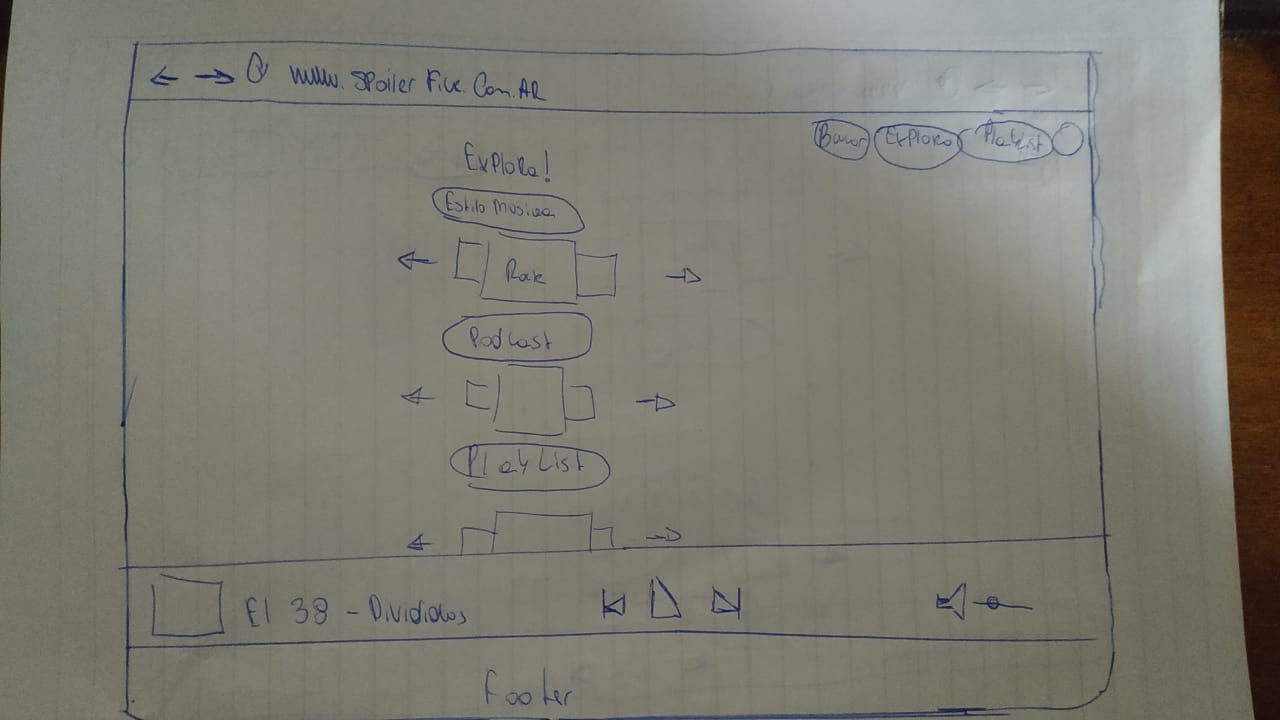 www.Spoiler Five.Com.AR
Buscar Explora PlayList
Explora!
Estilo Musica
Rock
Podcast
PlayList
El 38 - Divididos
Footer